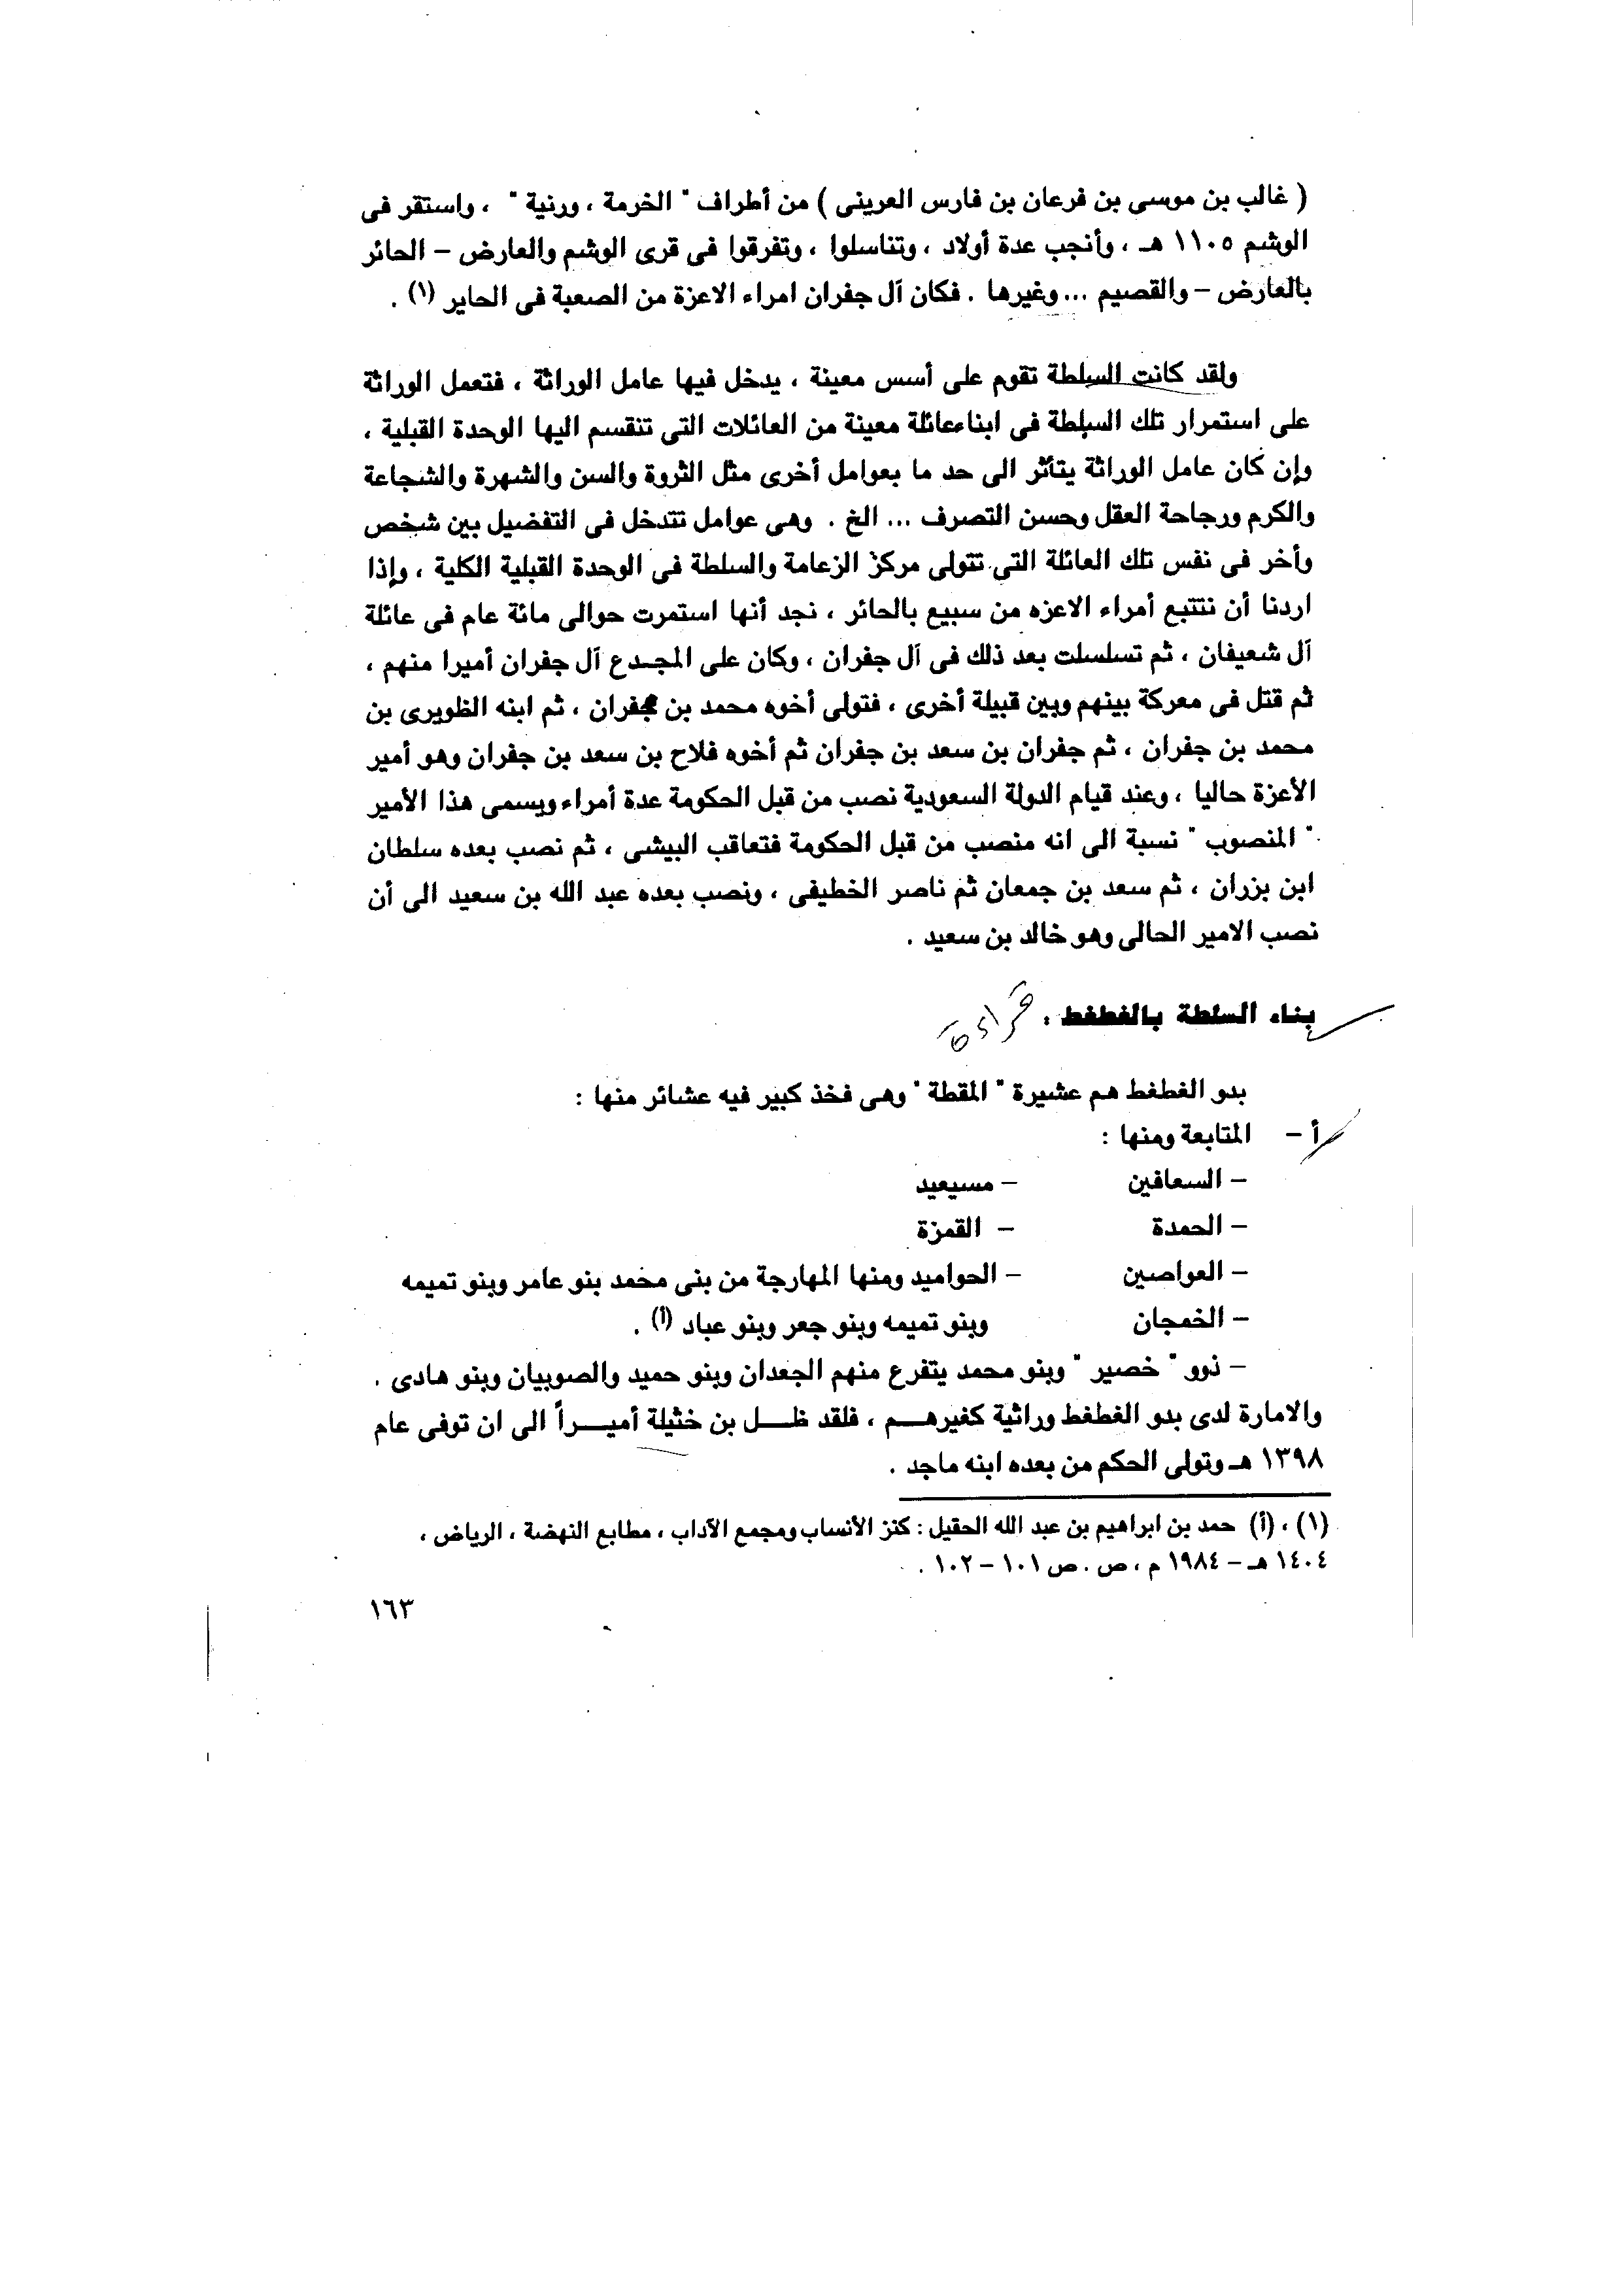 ( غالب بن موسى بن فرعان بن فارس العرينى ) من أطراف " الخرمة ، ورنية " ، واستقر فى
الوشم ١١٠٥ هـ ، وأنجب عدة أولاد ، وتناسلوا ، وتفرقوا فى قرى الوشم والعارض – الحائر
بالعارض – والقصيم ... وغيرها . فكان آل جفران امراء الاعزة من الصعبة فى الحاير (١) .
ولقد كانت السلطة تقوم على أسس معينة ، يدخل فيها عامل الوراثة ، فتعمل الوراثة
على استمرار تلك السلطة فى ابناءعائلة معينة من العائلات التى تنقسم اليها الوحدة القبلية ،
وإن كان عامل الوراثة يتأثر الى حد ما بعوامل أخرى مثل الثروة والسن والشهرة والشجاعة
والكرم ورجاحة العقل وحسن التصرف ... الخ . وهى عوامل تتدخل فى التفضيل بين شخص
وأخر فى نفس تلك العائلة التى تتولى مركز الزعامة والسلطة فى الوحدة القبلية الكلية ، وإذا
اردنا أن نتتبع أمراء الاعزه من سبيع بالحائر ، نجد أنها استمرت حوالى مائة عام فى عائلة
آل شعيفان ، ثم تسلسلت بعد ذلك فى آل جفران ، وكان على المجـدع آل جفران أميرا منهم ،
ثم قتل فى معركة بينهم وبين قبيلة أخرى ، فتولى أخوه محمد بن جفران ، ثم ابنه الظويرى بن
محمد بن جفران ، ثم جفران بن سعد بن جفران ثم أخوه فلاح بن سعد بن جفران وهو أمير
الأعزة حاليا ، وعند قيام الدولة السعودية نصب من قبل الحكومة عدة أمراء ويسمى هذا الأمير
" المنصوب " نسبة الى انه منصب من قبل الحكومة فتعاقب البيشى ، ثم نصب بعده سلطان
ابن بزران ، ثم سعد بن جمعان ثم ناصر الخطيفى ، ونصب بعده عبد الله بن سعيد الى أن
نصب الامير الحالى وهو خالد بن سعيد .
بناء السلطة بالغطغط : قراءة
بدو الغطغط هم عشيرة " المقطة " وهى فخذ كبير فيه عشائر منها :
أ – المتابعة ومنها :
– السعافين – مسيعيد
– الحمدة – القمزة
– العواصين – الحواميد ومنها المهارجة من بنى محمد بنو عامر وبنو تميمه
– الخمجان وبنو تميمه وبنو جعر وبنو عباد (أ) .
– ذوو " خصير " وبنو محمد يتفرع منهم الجعدان وبنو حميد والصوبيان وبنو هادى .
والامارة لدى بدو الغطغط وراثية كغيرهـــم ، فلقد ظـــل بن خثيلة أميـــراً الى ان توفى عام
١٣٩٨ هـ وتولى الحكم من بعده ابنه ماجد .
(١) ، (أ) حمد بن ابراهيم بن عبد الله الحقيل : كنز الأنساب ومجمع الآداب ، مطابع النهضة ، الرياض ،
١٤٠٤ هـ – ١٩٨٤ م ، ص . ص ١٠١ – ١٠٢ .
١٦٣